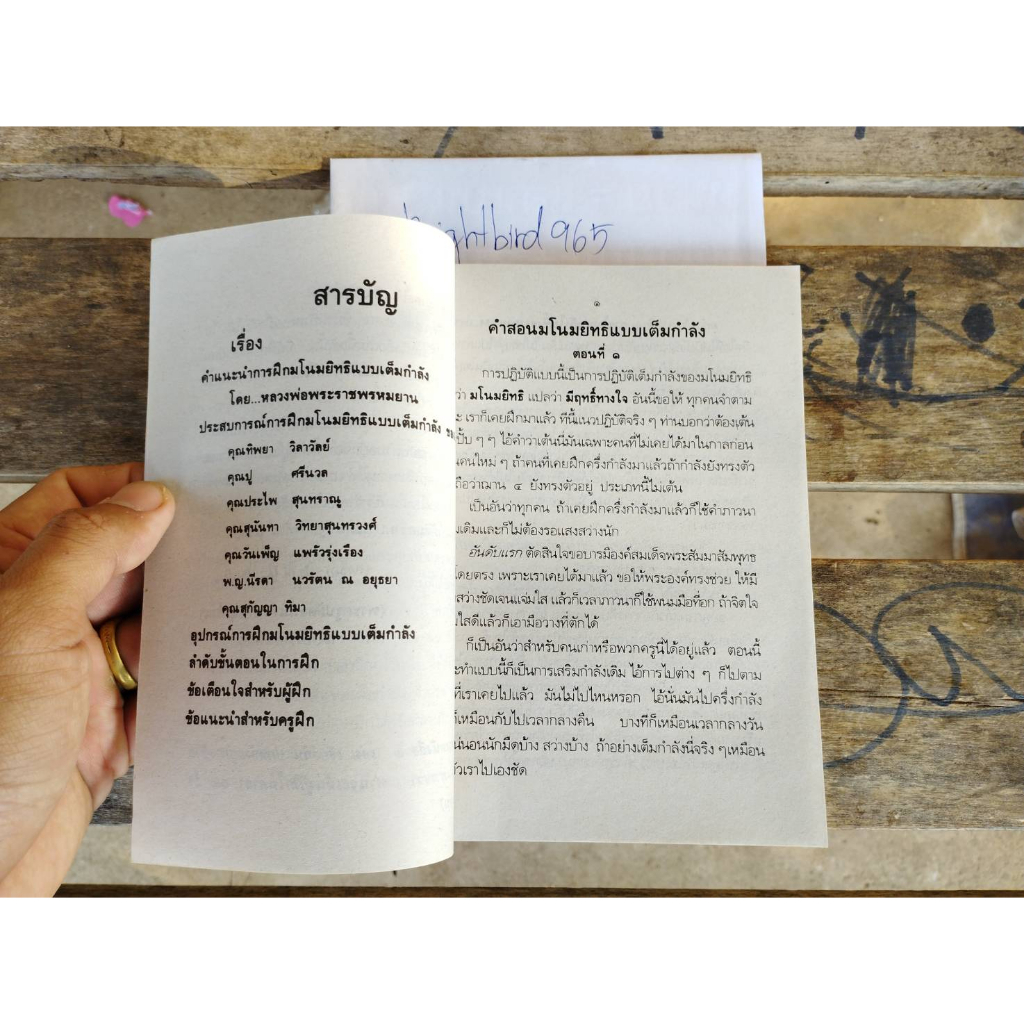 nightbird965
สารบัญ
เรื่อง
คำแนะนำการฝึกมโนมยิทธิแบบเต็มกำลัง
โดย...หลวงพ่อพระราชพรหมยาน
ประสบการณ์การฝึกมโนมยิทธิแบบเต็มกำลัง
คุณทิพยา วิลาวัลย์
คุณปู ศรีนวล
คุณประไพ สุนทราณู
คุณสุนันทา วิทยาสุนทรวงศ์
คุณวันเพ็ญ แพรัวรุ่งเรือง
พ.ญ.นีรดา นวรัตน ณ อยุธยา
คุณสุกัญญา ทิมา
อุปกรณ์การฝึกมโนมยิทธิแบบเต็มกำลัง
ลำดับขั้นตอนในการฝึก
ข้อเตือนใจสำหรับผู้ฝึก
ข้อแนะนำสำหรับครูฝึก
๑
คำสอนมโนมยิทธิแบบเต็มกำลัง
ตอนที่ ๑
การปฏิบัติแบบนี้เป็นการปฏิบัติเต็มกำลังของมโนมยิทธิ
ว่า มโนมยิทธิ แปลว่า มีฤทธิ์ทางใจ อันนี้ขอให้ ทุกคนจำตาม
ะ เราก็เคยฝึกมาแล้ว ทีนี้แนวปฏิบัติจริง ๆ ท่านบอกว่าต้องเต้น
ปั๊บ ๆ ๆ ไอ้คำว่าเต้นนี่มันเฉพาะคนที่ไม่เคยได้มาในกาลก่อน
นคนใหม่ ๆ ถ้าคนที่เคยฝึกครึ่งกำลังมาแล้วถ้ากำลังยังทรงตัว
ถือว่าฌาน ๔ ยังทรงตัวอยู่ ประเภทนี้ไม่เต้น
เป็นอันว่าทุกคน ถ้าเคยฝึกครึ่งกำลังมาแล้วก็ใช้คำภาวนา
มเดิมและก็ไม่ต้องรอแสงสว่างนัก
อันดับแรก ตัดสินใจขอบารมีองค์สมเด็จพระสัมมาสัมพุทธ
โดยตรง เพราะเราเคยได้มาแล้ว ขอให้พระองค์ทรงช่วย ให้มี
สว่างชัดเจนแจ่มใส แล้วก็เวลาภาวนาก็ใช้พนมมือที่อก ถ้าจิตใจ
มใสดีแล้วก็เอามือวางที่ตักได้
ก็เป็นอันว่าสำหรับคนเก่าหรือพวกครูนี่ได้อยู่แล้ว ตอนนี้
ะทำแบบนี้ก็เป็นการเสริมกำลังเดิม ไอ้การไปต่าง ๆ ก็ไปตาม
ที่เราเคยไปแล้ว มันไม่ไปไหนหรอก ไอ้นั่นมันไปครึ่งกำลัง
ก็เหมือนกับไปเวลากลางคืน บางทีก็เหมือนเวลากลางวัน
น่นอนนักมืดบ้าง สว่างบ้าง ถ้าอย่างเต็มกำลังนี่จริง ๆเหมือน
ตัวเราไปเองชัด